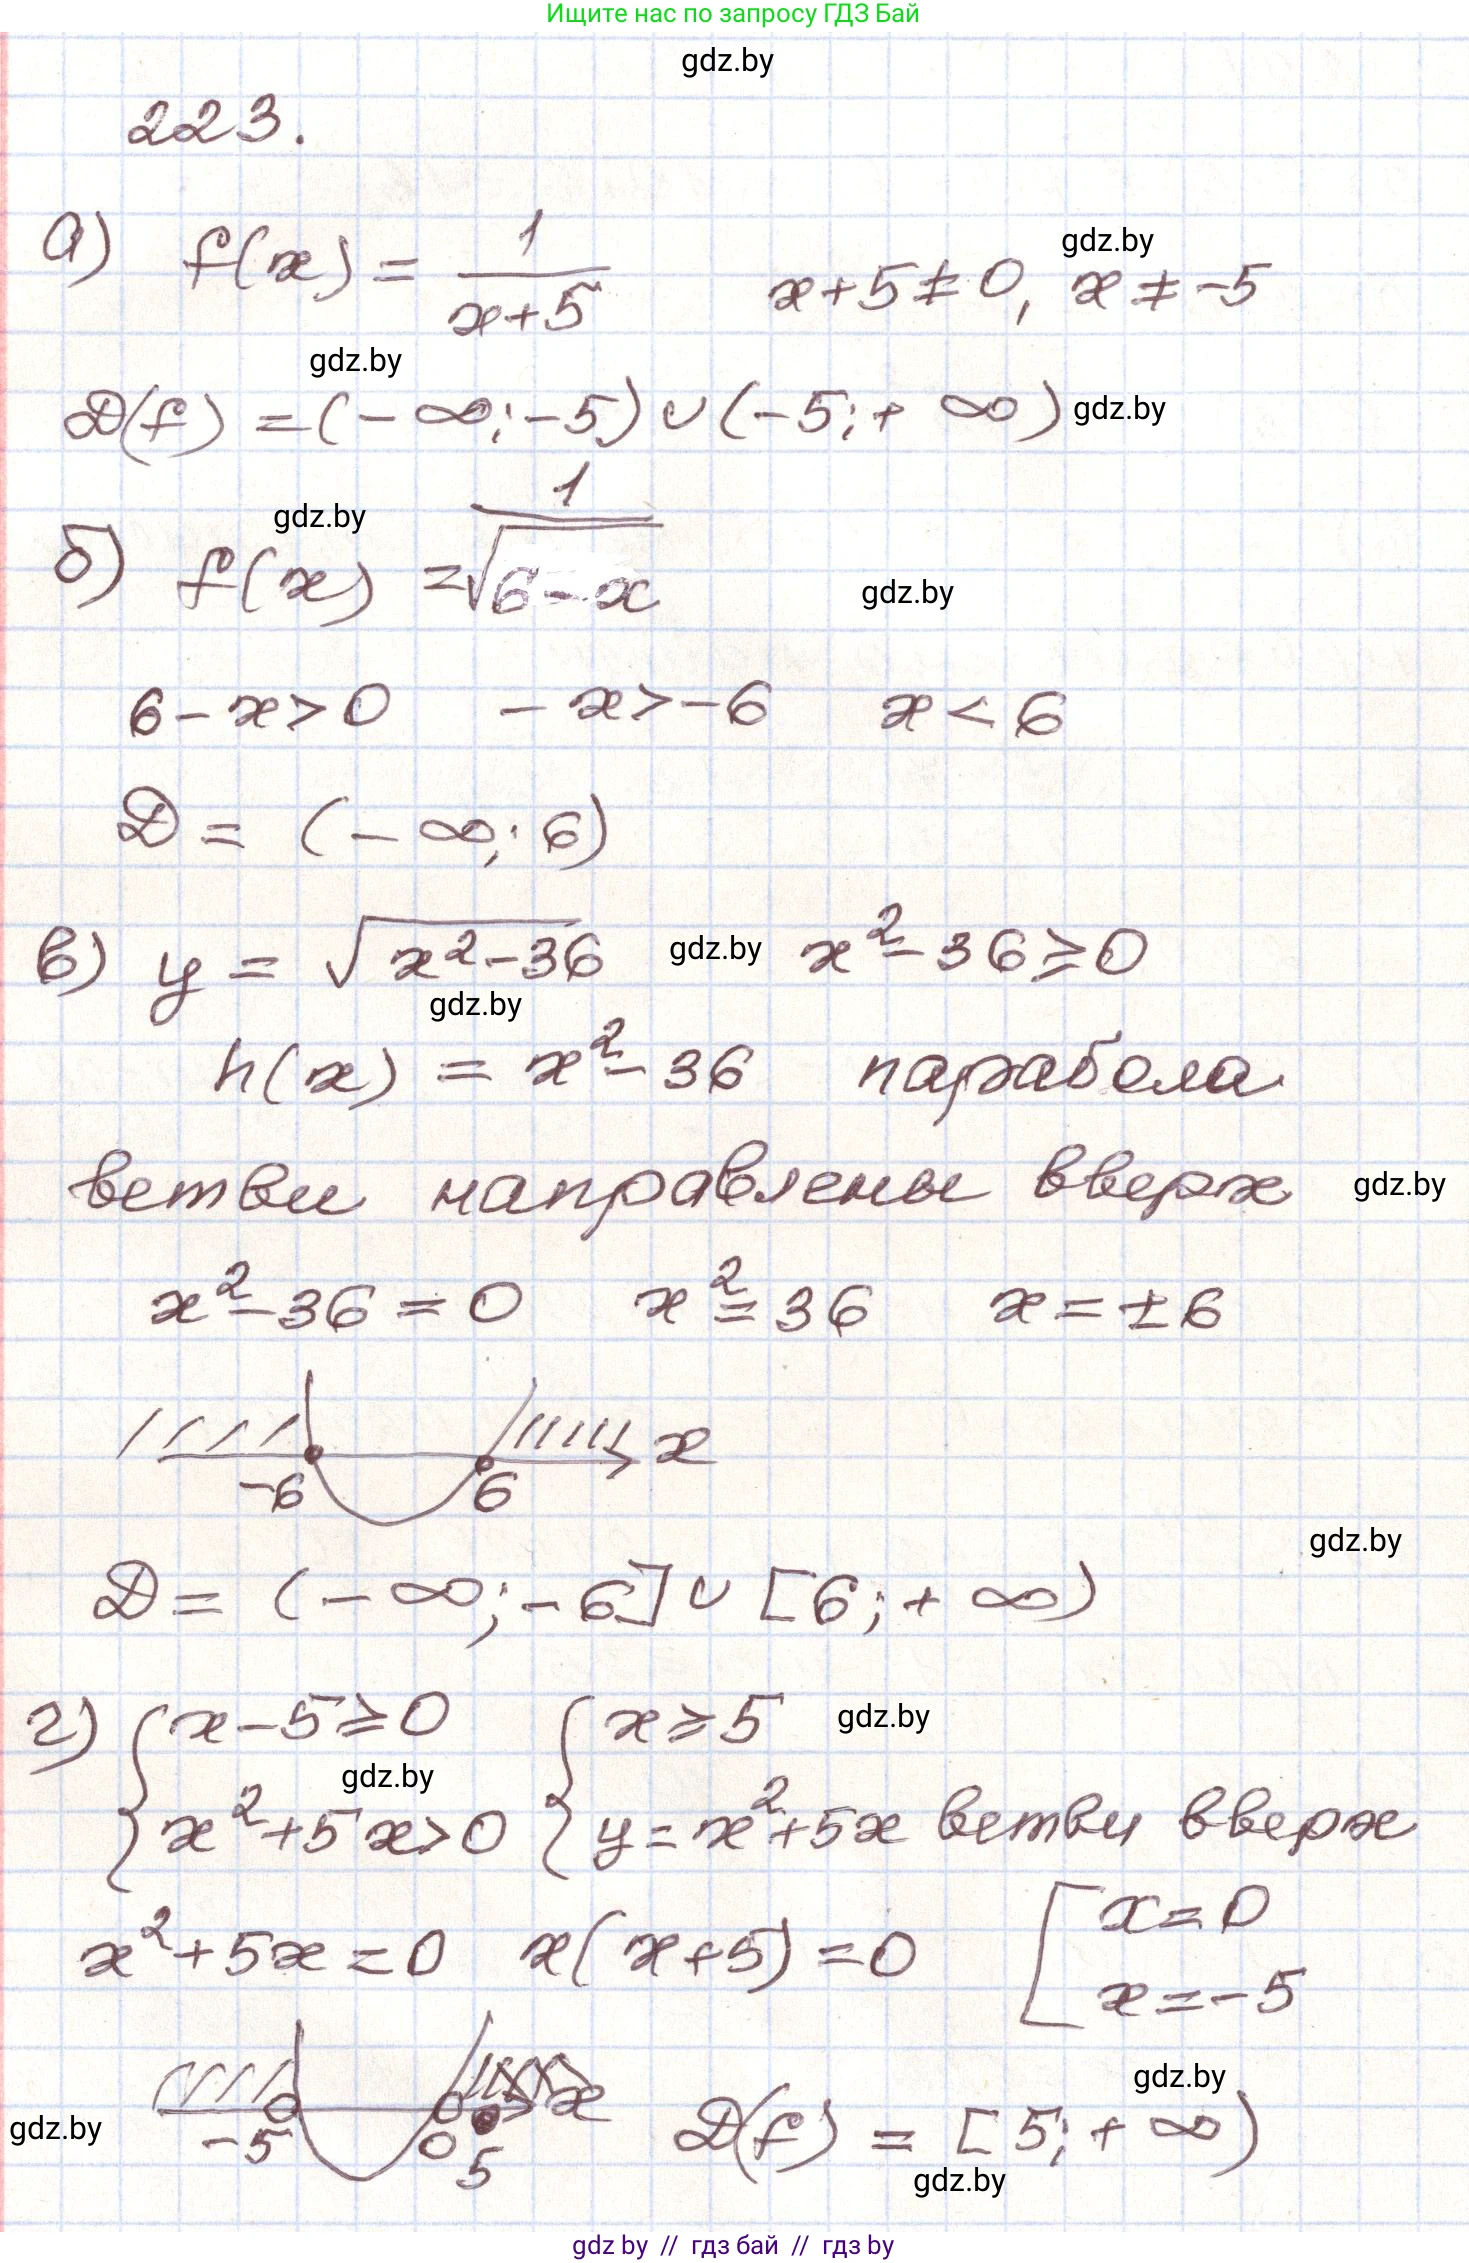 Ищите нас по запросу ГДЗ Бай
gdz.by
223.
а) f(x) = 1/(x+5) x+5≠0, x≠-5
gdz.by
gdz.by
D(f) = (-∞;-5)∪(-5;+∞)
gdz.by
gdz.by
б) f(x) = 1/√(6-x)
gdz.by
6-x>0 -x>-6 x<6
D = (-∞;6)
в) y = √(x²-36) gdz.by x²-36≥0
gdz.by
h(x) = x²-36 парабола
ветви направлены вверх gdz.by
x²-36=0 x²=36 x=±6
-6 6 x
gdz.by
D = (-∞;-6]∪[6;+∞)
г) { x-5≥0 { x≥5 gdz.by
gdz.by
x²+5x>0 y=x²+5x ветви вверх
x²+5x=0 x(x+5)=0 [ x=0
x=-5
gdz.by
gdz.by -5 0 5 x D(f) = [5;+∞)
gdz.by
gdz by // гдз бай // гдз by